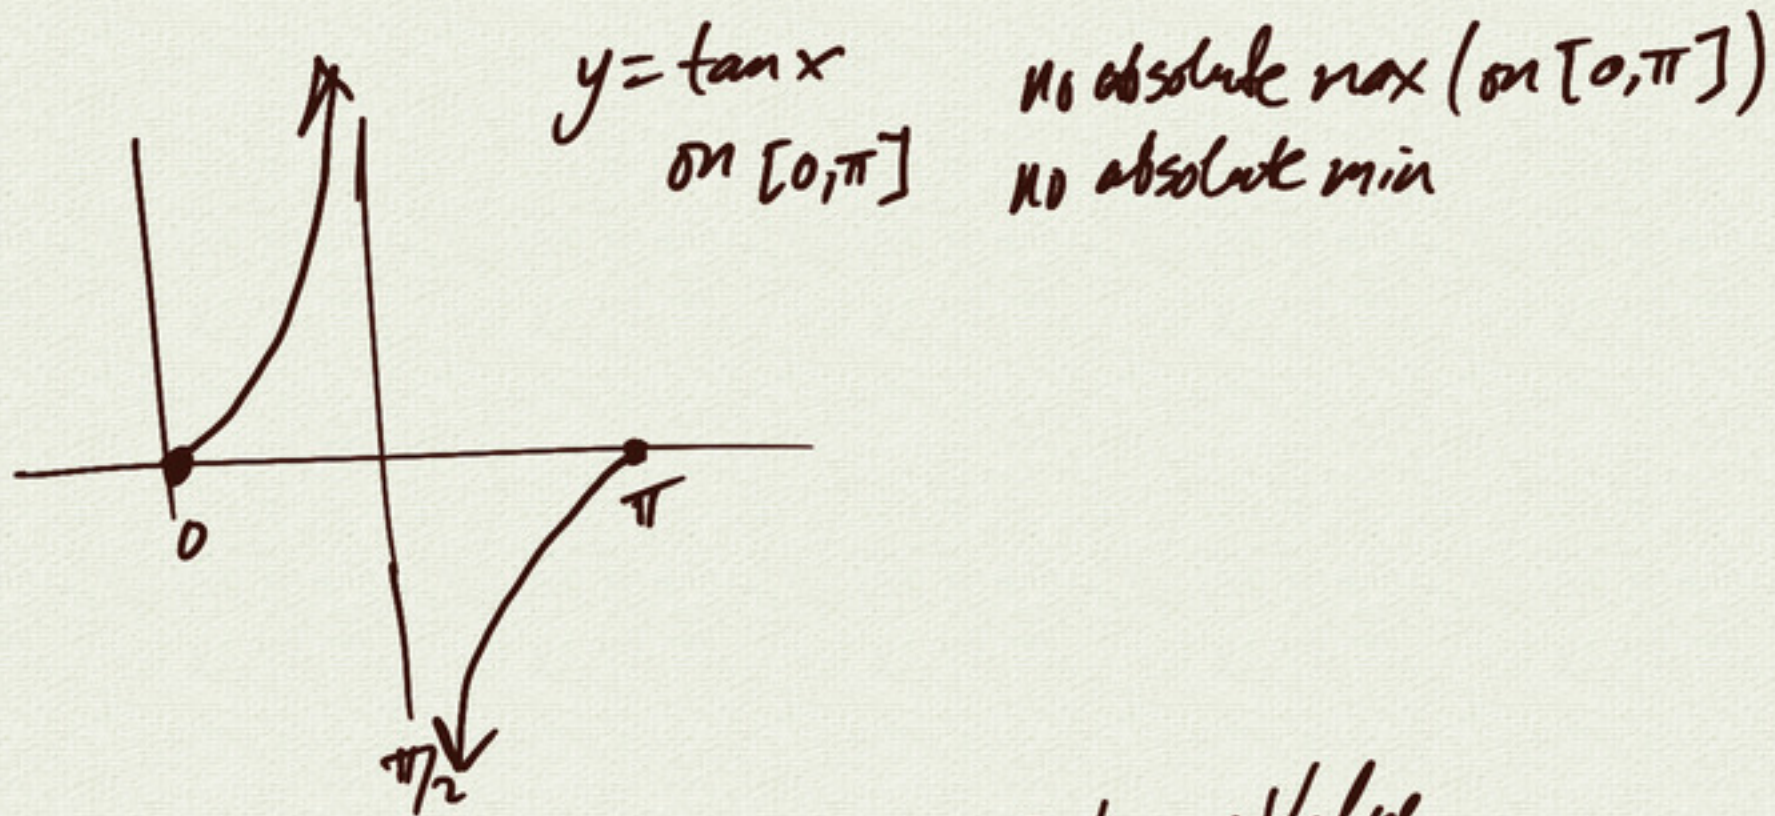 y = tan x
on [0,π]
no absolute max (on [0,π])
no absolute min
0
π
π/2